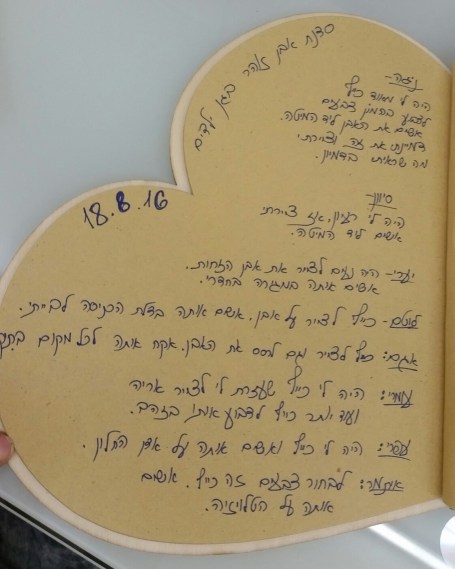 סדנת אבן זוהר בגן ילדים
18.8.16
נגה-
היה לי מאוד כיף
לצבוע בהמון צבעים
אשים את האבן ליד המיטה.
דמיינתי את זה וציירתי
מה שראיתי בדמיון.
סיוון-
היה לי רעיון, אז ציירתי
אשים ליד המיטה.
יערי- היה נעים לצייר את אבן הזוהרת.
אשים אותה במגירה בחדרי.
לוטם- כייף לצייר על אבן. אשים אותה בדלת הכניסה לבייתי.
אגם: כיף לצייר וגם לרסס את האבן. אקח אותה לכל מקום
עומרי: היה לי כייף שעזרת לי לצייר אריה
ועוד יותר כייף לצבוע אותו בזהב.
עפרי: היה לי כייף ואשים אותה על אדן החלון.
איתמר: לבחור צבעים זה כייף. אשים
אותה על הטלויזיה.